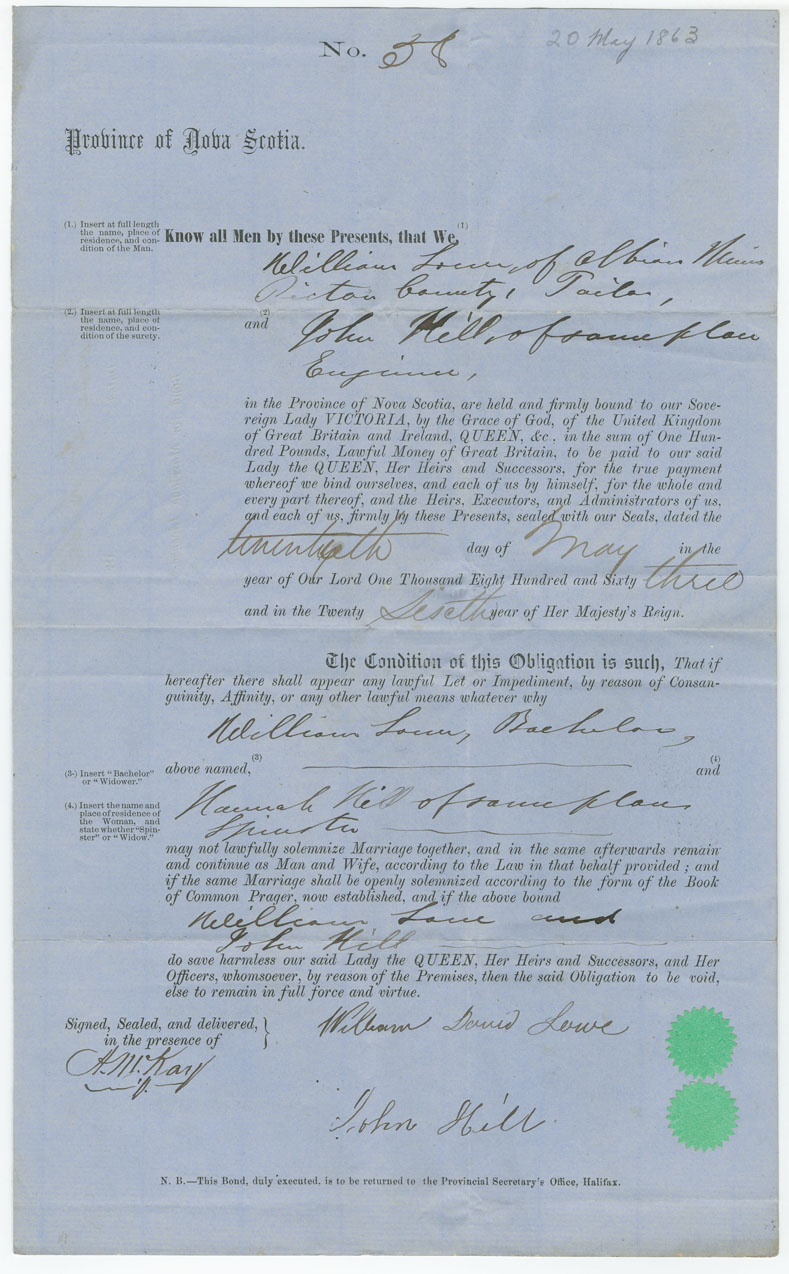 20 May 1863
No. 38
Province of Nova Scotia.
(1.) Insert at full length
the name, place of
residence, and con-
dition of the Man.
Know all Men by these Presents, that We, (1)
William Lowe, of Albion Mines
Pictou County, Tailor,
(2.) Insert at full length
the name, place of
residence, and con-
dition of the surety.
and (2) John Hill, of same place
Engineer,
in the Province of Nova Scotia, are held and firmly bound to our Sove-
reign Lady VICTORIA, by the Grace of God, of the United Kingdom
of Great Britain and Ireland, QUEEN, &c., in the sum of One Hun-
dred Pounds, Lawful Money of Great Britain, to be paid to our said
Lady the QUEEN, Her Heirs and Successors, for the true payment
whereof we bind ourselves, and each of us by himself, for the whole and
every part thereof, and the Heirs, Executors, and Administrators of us,
and each of us, firmly by these Presents, sealed with our Seals, dated the
twentyeth day of May in the
year of Our Lord One Thousand Eight Hundred and Sixty three
and in the Twenty Sixth year of Her Majesty's Reign.
The Condition of this Obligation is such, That if
hereafter there shall appear any lawful Let or Impediment, by reason of Consan-
guinity, Affinity, or any other lawful means whatever why
William Lowe, Bachelor,
above named, (3) and (4)
(3.) Insert "Bachelor"
or "Widower."
(4.) Insert the name and
place of residence of
the Woman, and
state whether "Spin-
ster" or "Widow."
Hannah Hill of same place
Spinster
may not lawfully solemnize Marriage together, and in the same afterwards remain
and continue as Man and Wife, according to the Law in that behalf provided; and
if the same Marriage shall be openly solemnized according to the form of the Book
of Common Prager, now established, and if the above bound
William Lowe and
John Hill
do save harmless our said Lady the QUEEN, Her Heirs and Successors, and Her
Officers, whomsoever, by reason of the Premises, then the said Obligation to be void,
else to remain in full force and virtue.
Signed, Sealed, and delivered,
in the presence of
A. McKay
William David Lowe
John Hill
N. B.—This Bond, duly executed, is to be returned to the Provincial Secretary's Office, Halifax.